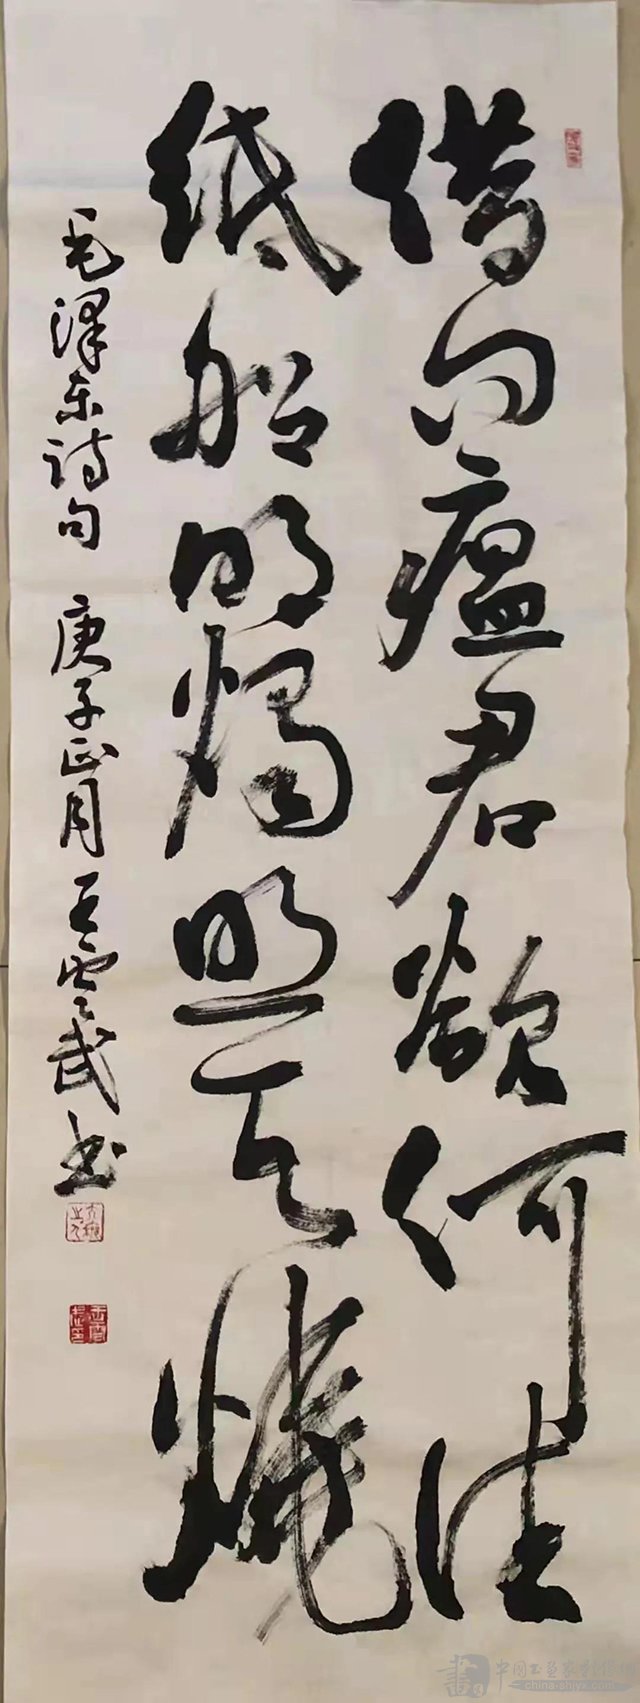 借问瘟君欲何往
纸船明烛照天烧
毛泽东诗句 庚子正月 王云武书
中国书画家影像网
china-shjyx.com